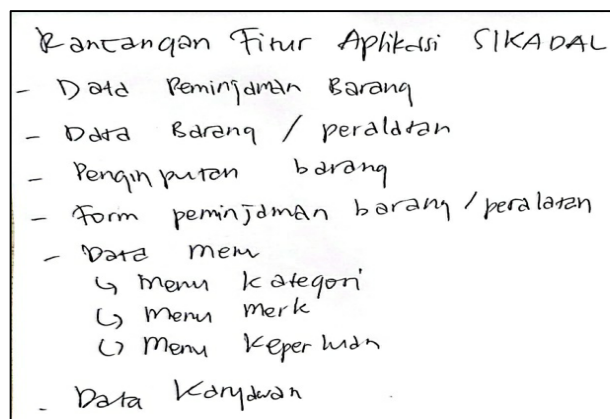 Rancangan Fitur Aplikasi SIKADAL
- Data Peminjaman Barang
- Data Barang / peralatan
- Penginputan barang
- Form peminjaman barang / peralatan
- Data menu
↳ Menu Kategori
↳ Menu merk
↳ Menu Keperluan
- Data Karyawan